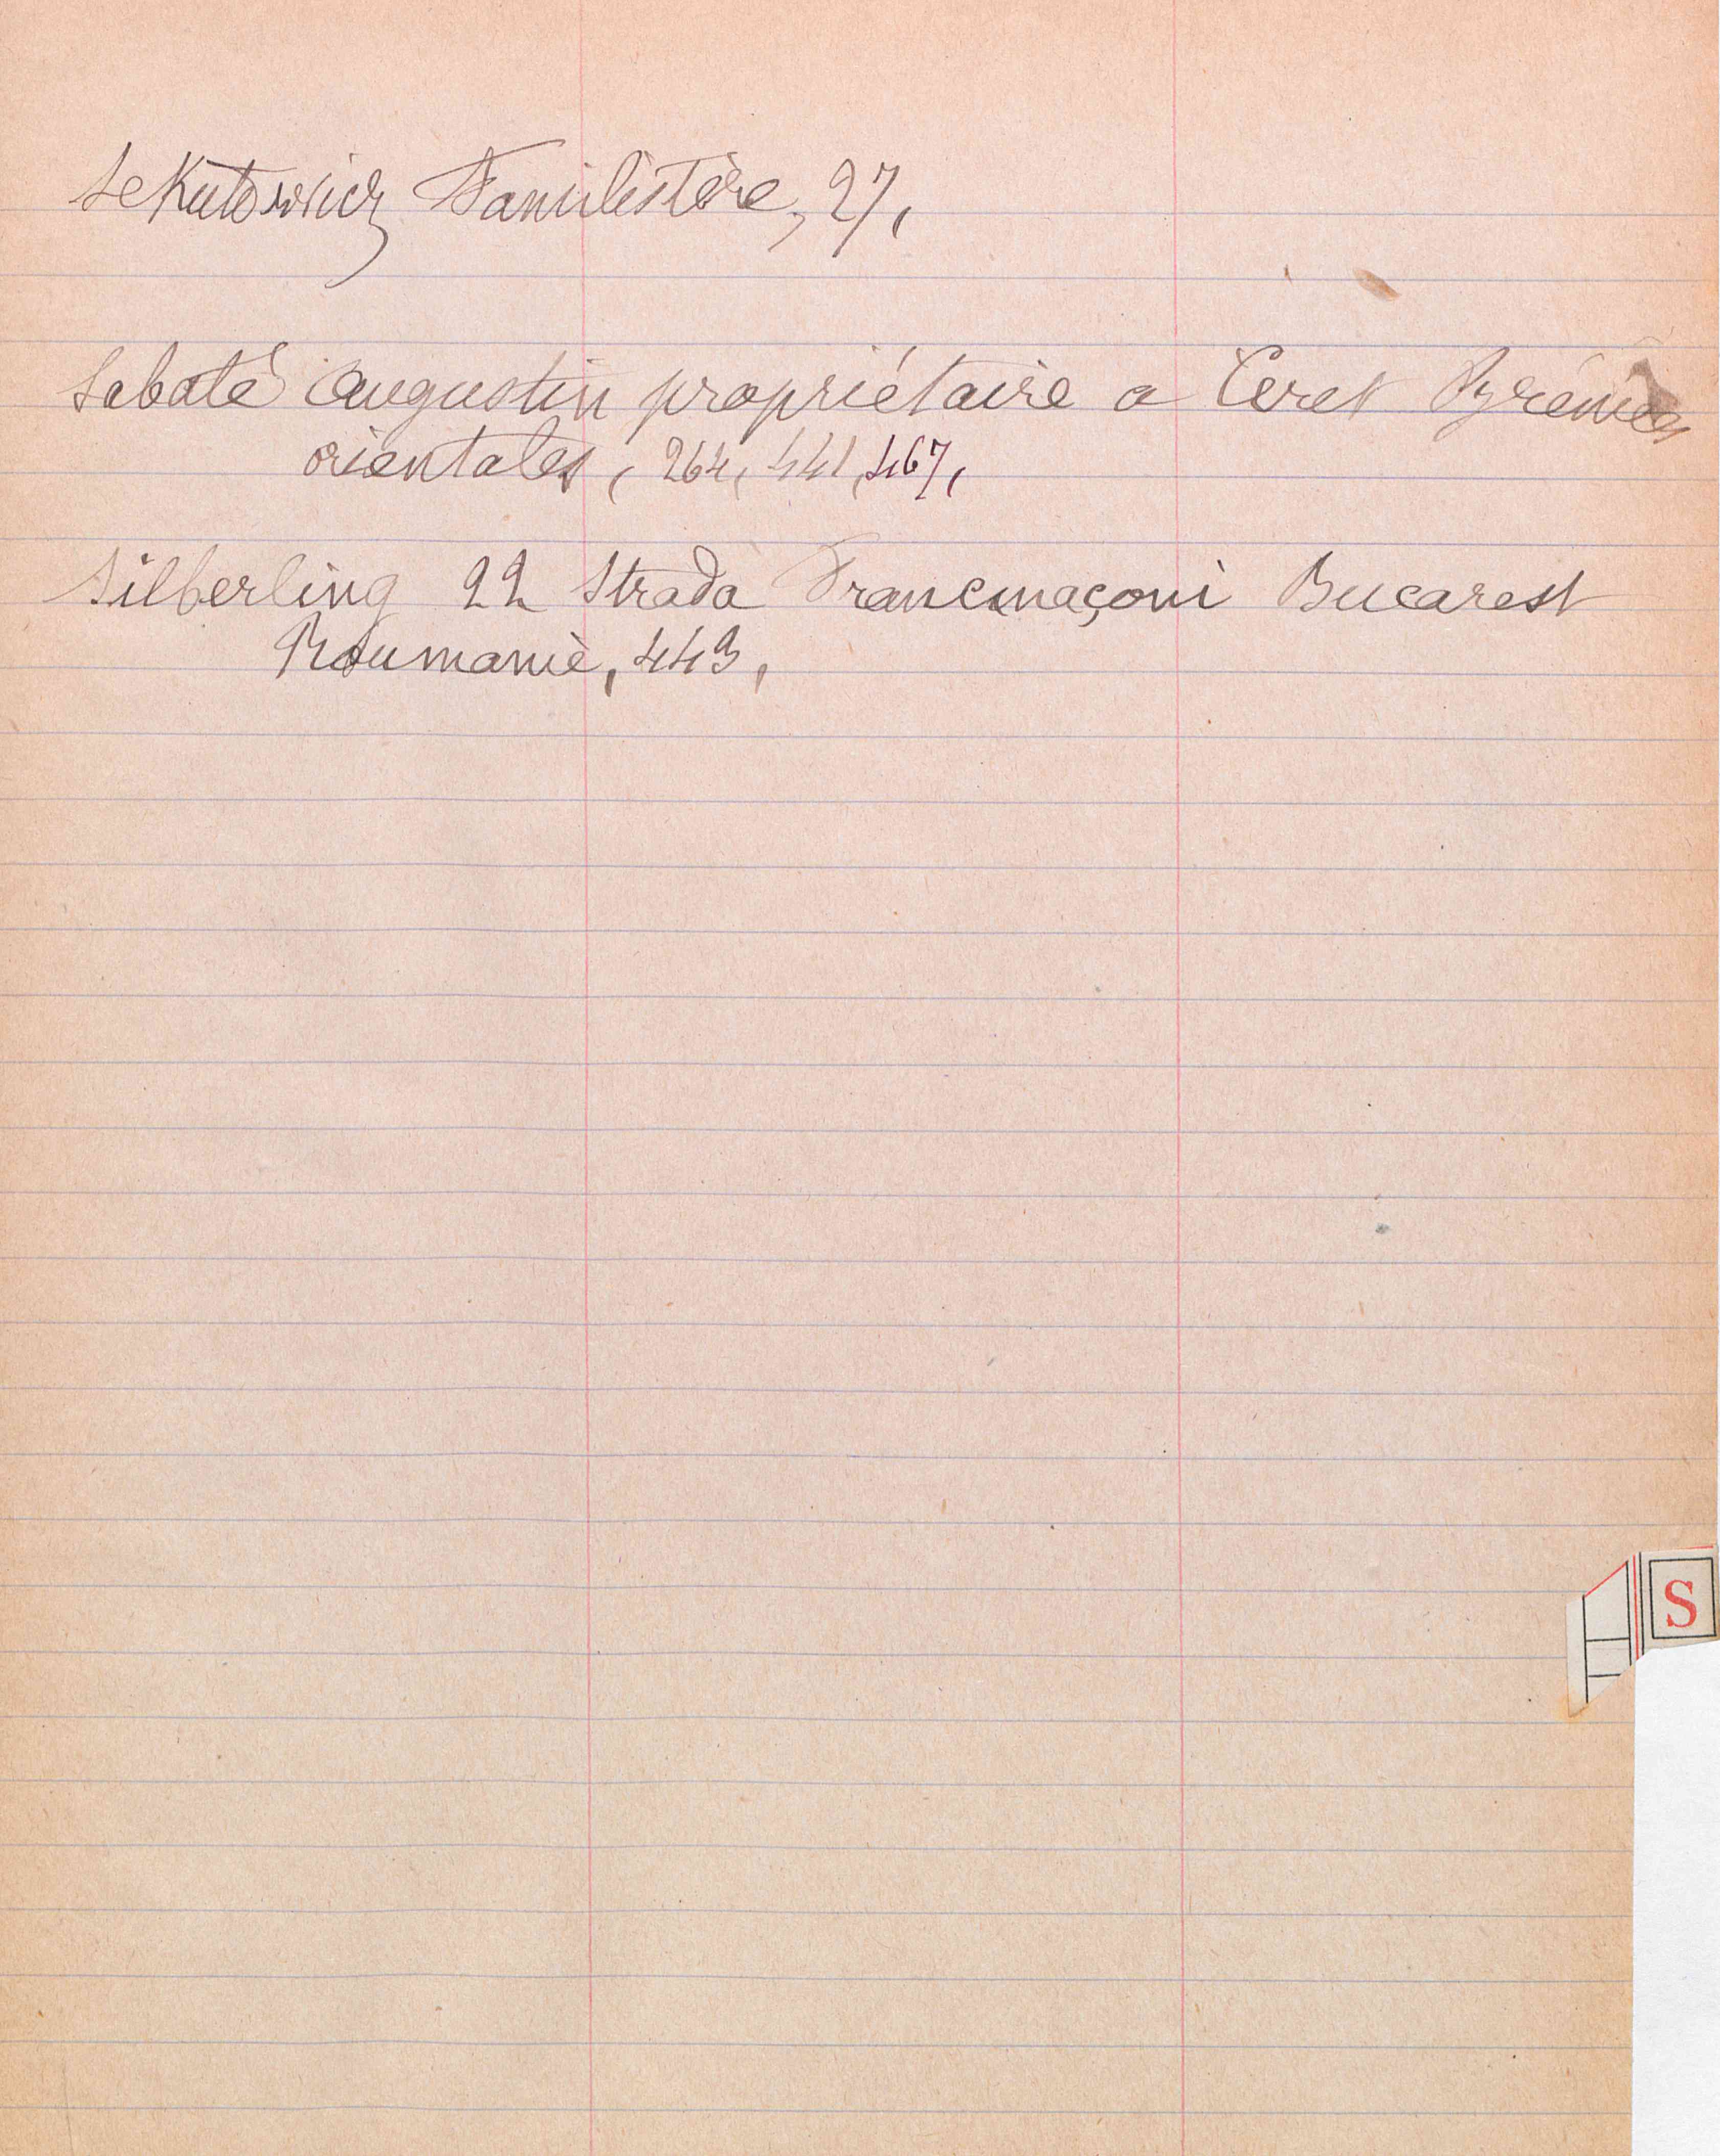 Sekutowicz Familistère, 27,
Sabaté Augustin propriétaire a Ceret Pyrénées
orientales, 264, 441, 467,
Silberling 22 Strada Francmaçoni Bucarest
Roumanie, 443,
S